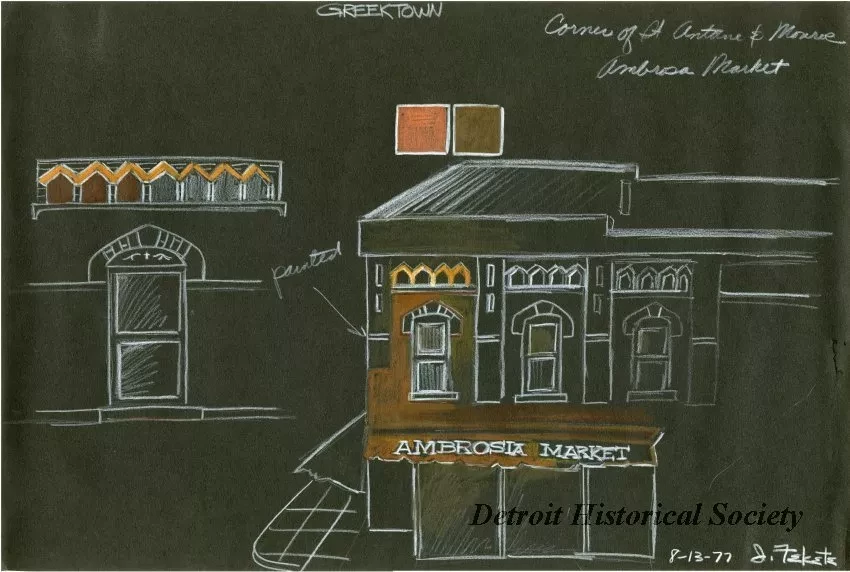 GREEKTOWN
Corner of St Antoine & Monroe
Ambrosa Market
painted
AMBROSIA MARKET
Detroit Historical Society
8-13-77 J. Fekete